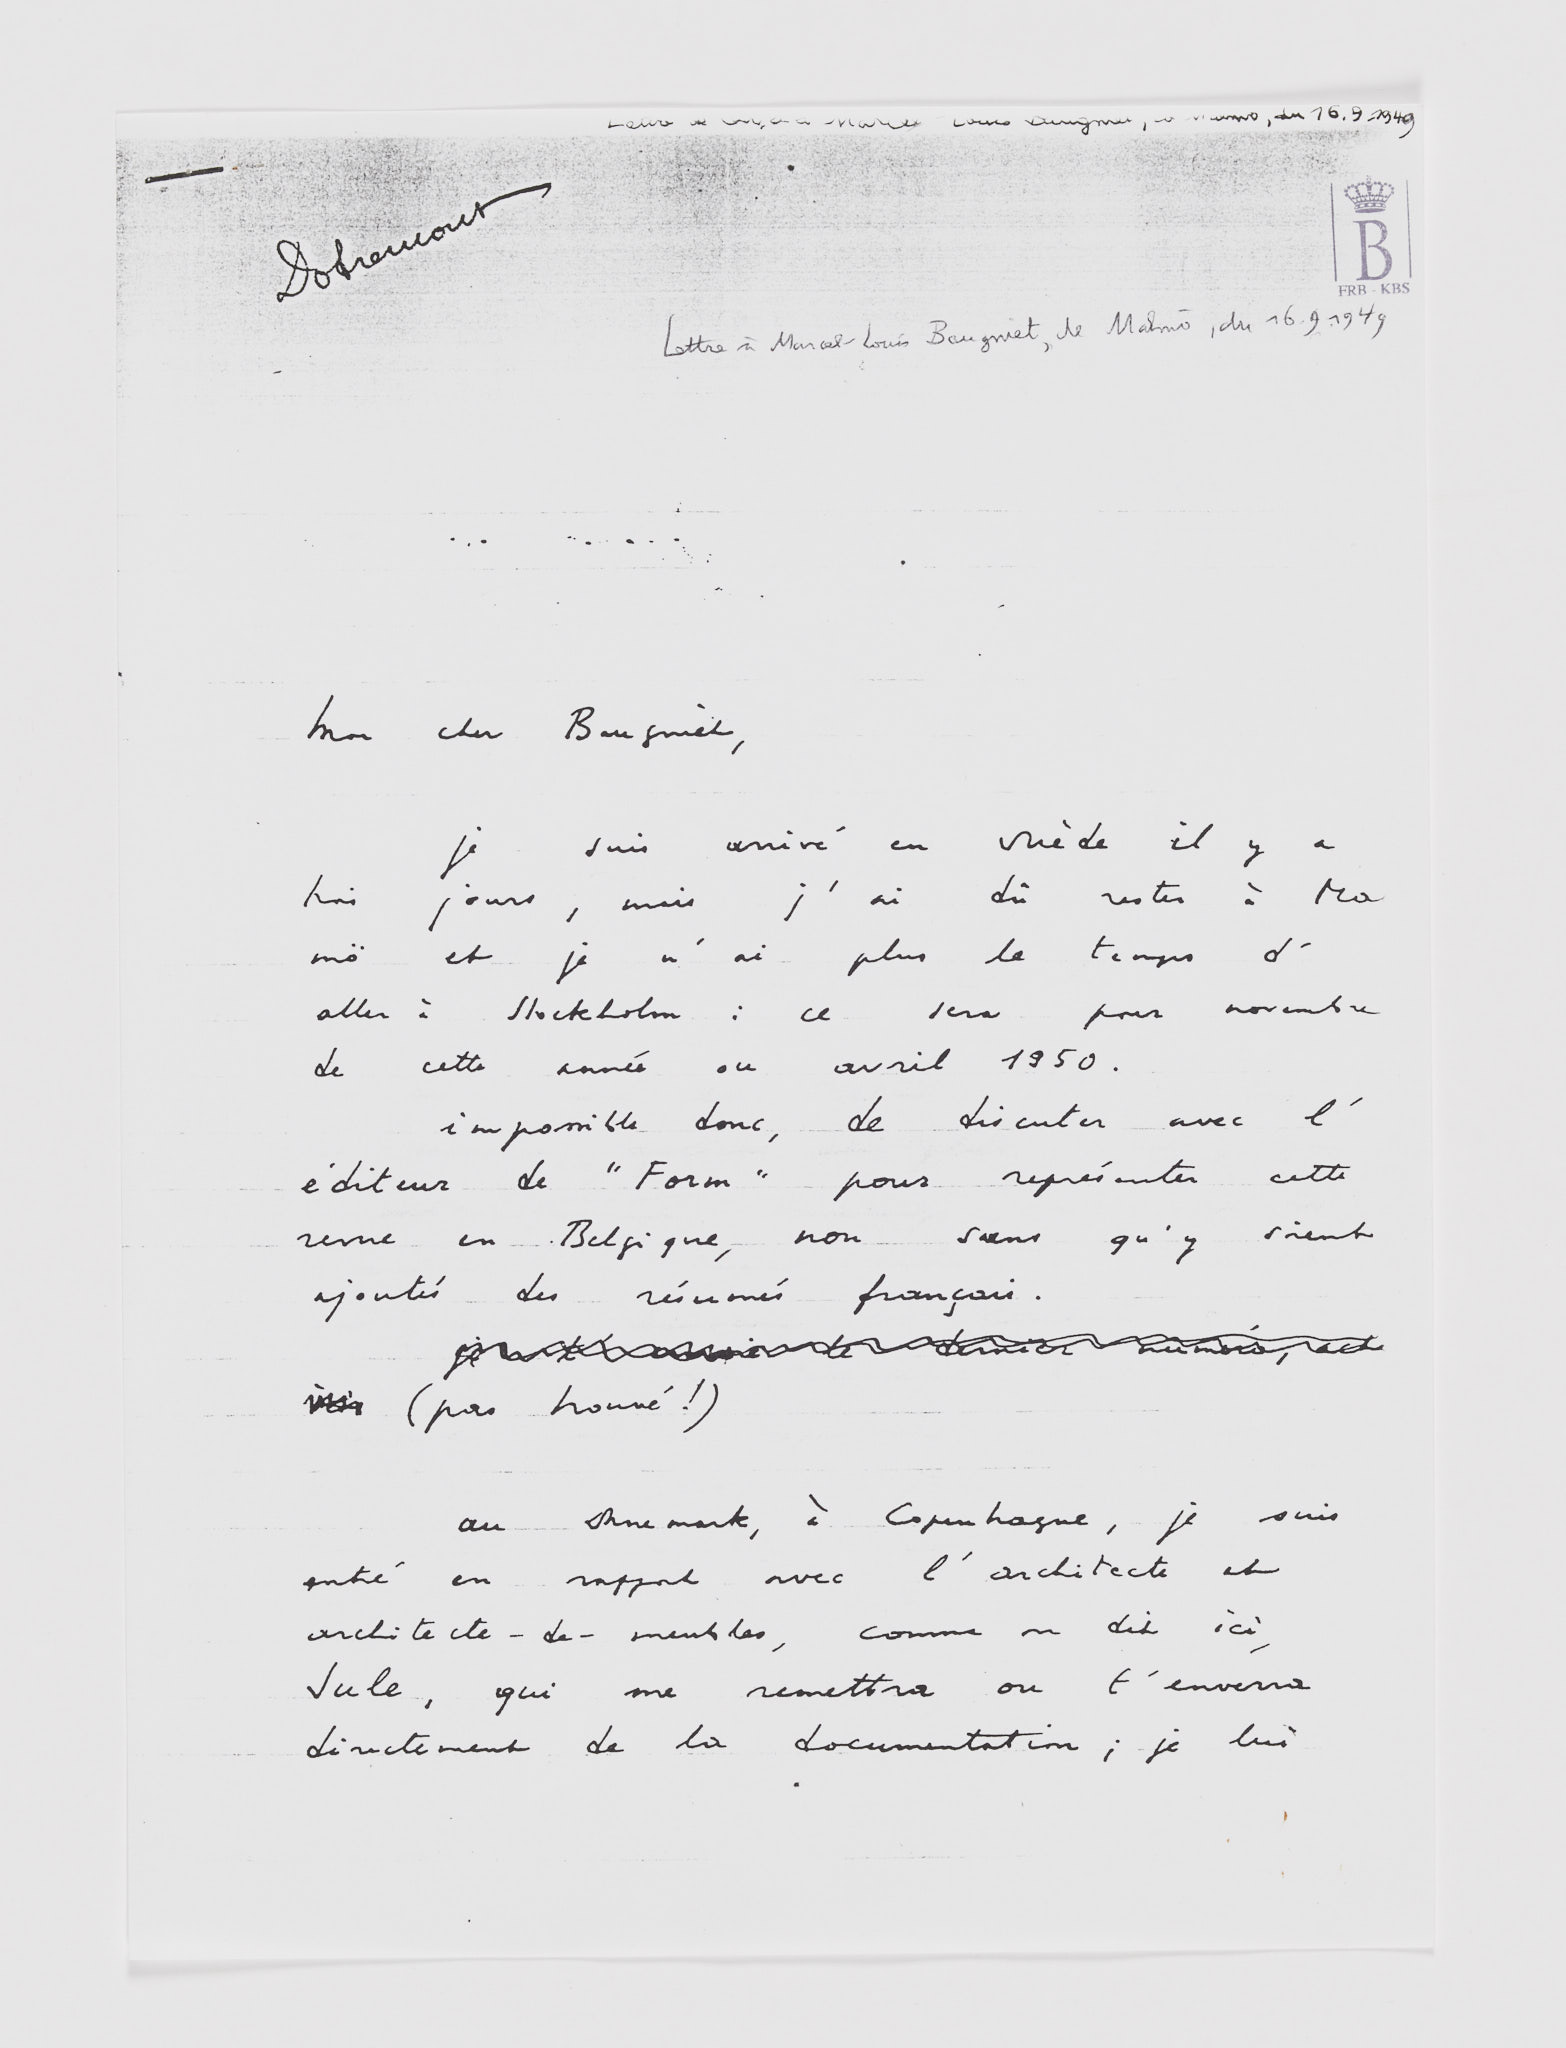 à Marcel Louis Baugniet, de Malmö, du 16.9.1949
Dotremont
B
FRB - KBS
Lettre à Marcel-Louis Baugniet, de Malmö, du 16.9.1949
Mon cher Baugniet,
je suis arrivé en suède il y a
trois jours, mais j'ai dû rester à Ma
mö et je n'ai plus le temps d'
aller à Stockholm : ce sera pour novembre
de cette année ou avril 1950.
impossible donc, de discuter avec l'
éditeur de "Form" pour représenter cette
revue en Belgique, non sans qu'y soient
ajoutés des résumés français.
je t'envoie le dernier numéro,
(pas trouvé!)
au danemark, à Copenhague, je suis
entré en rapport avec l'architecte et
architecte-de-meubles, comme on dit ici,
Jule, qui me remettra ou t'enverra
directement de la documentation ; je lui